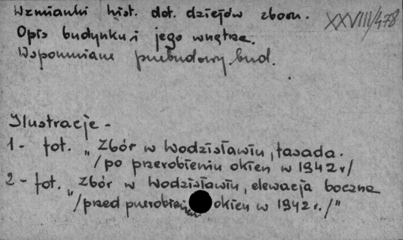 Wzmianki hist. dot. dziejów zboru. XXVIII/478
Opis budynku i jego wnętrza.
Wspomniane przebudowy bud.
Ilustracje -
1 - fot. „Zbór w Wodzisławiu, fasada.
/po przerobieniu okien w 1942 r/
2 - fot. „Zbór w Wodzisławiu, elewacja boczna
/przed przerobieniem okien w 1942 r./"